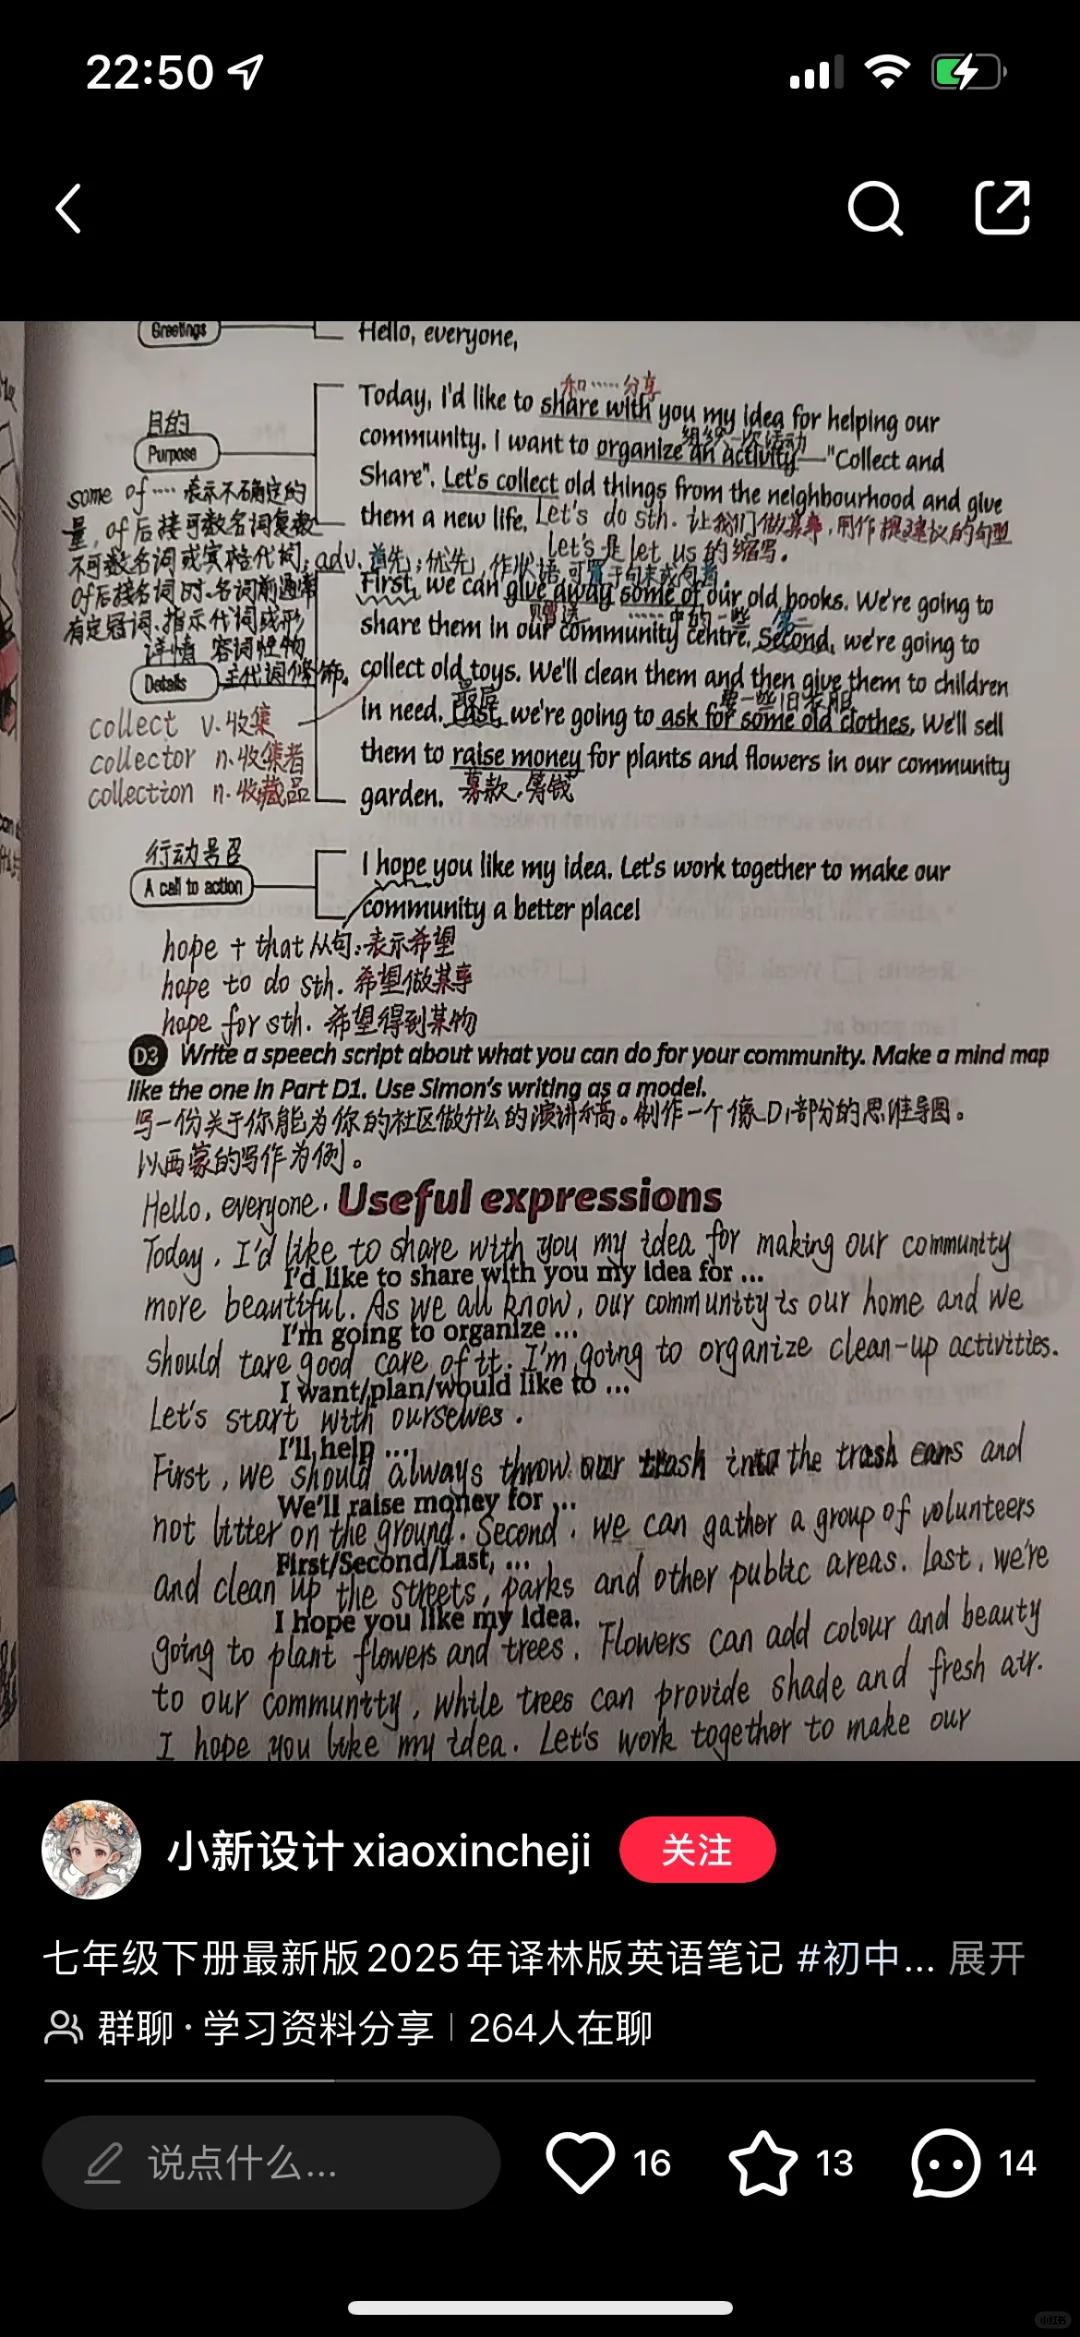 22:50
Greetings
Hello, everyone,
和……分享
Today, I'd like to share with you my idea for helping our
目的
组织一次活动
Purpose
community. I want to organize an activity—"Collect and
Share". Let's collect old things from the neighbourhood and give
some of…. 表示不确定的
them a new life. Let's do sth. 让我们做某事,用作提建议的句型
量, of后接可数名词复数
let's是let us的缩写。
不可数名词或宾格代词; adv. 首先;优先,作状语,可置于句末或句首.
First, we can give away some of our old books. We're going to
of后接名词时,名词前通常
赠送 ……中的一些 第二
share them in our community centre. Second, we're going to
有定冠词、指示代词或形
详情 容词性物
Details
主代词修饰。
collect old toys. We'll clean them and then give them to children
最后 要一些旧衣服
in need. Last, we're going to ask for some old clothes. We'll sell
collect v.收集
collector n.收集者
them to raise money for plants and flowers in our community
collection n.收藏品
garden. 募款,筹钱
行动号召
A call to action
I hope you like my idea. Let's work together to make our
community a better place!
hope + that从句:表示希望
hope to do sth. 希望做某事
hope for sth. 希望得到某物
D3 Write a speech script about what you can do for your community. Make a mind map
like the one in Part D1. Use Simon's writing as a model.
写一份关于你能为你的社区做什么的演讲稿。制作一个像D1部分的思维导图。
以西蒙的写作为例。
Hello, everyone. Useful expressions
Today, I'd like to share with you my idea for making our community
I'd like to share with you my idea for ...
more beautiful. As we all know, our community is our home and we
I'm going to organize ...
should tare good care of it. I'm going to organize clean-up activities.
I want/plan/would like to ...
Let's start with ourselves.
I'll help ...
First, we should always throw our trash into the trash cans and
We'll raise money for ...
not litter on the ground. Second, we can gather a group of volunteers
First/Second/Last, ...
and clean up the streets, parks and other public areas. Last, we're
I hope you like my idea.
going to plant flowers and trees. Flowers can add colour and beauty
to our community, while trees can provide shade and fresh air.
I hope you like my idea. Let's work together to make our
小新设计xiaoxincheji
关注
七年级下册最新版2025年译林版英语笔记 #初中... 展开
群聊·学习资料分享 | 264人在聊
说点什么...
16
13
14
小红书